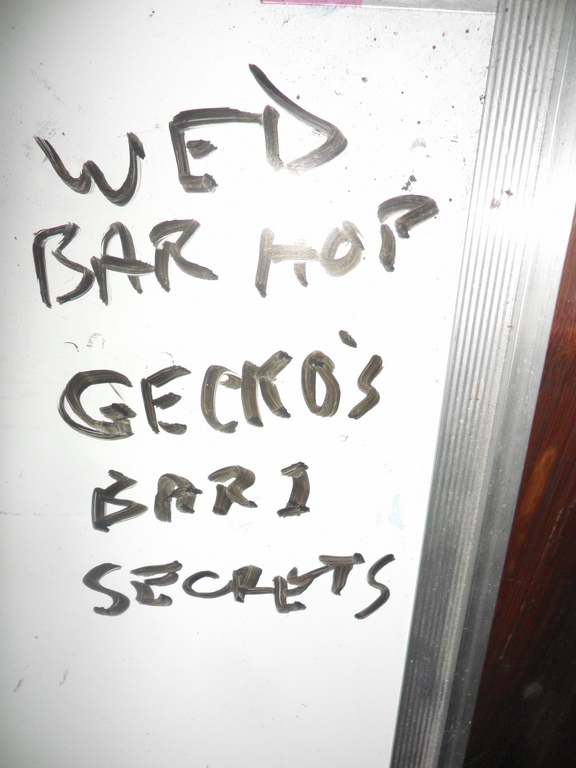 WED
BAR HOP
GECKO'S
BAR 1
SECRETS